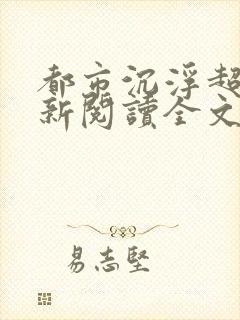 都市沉浮超
新閱讀全文
易志堅